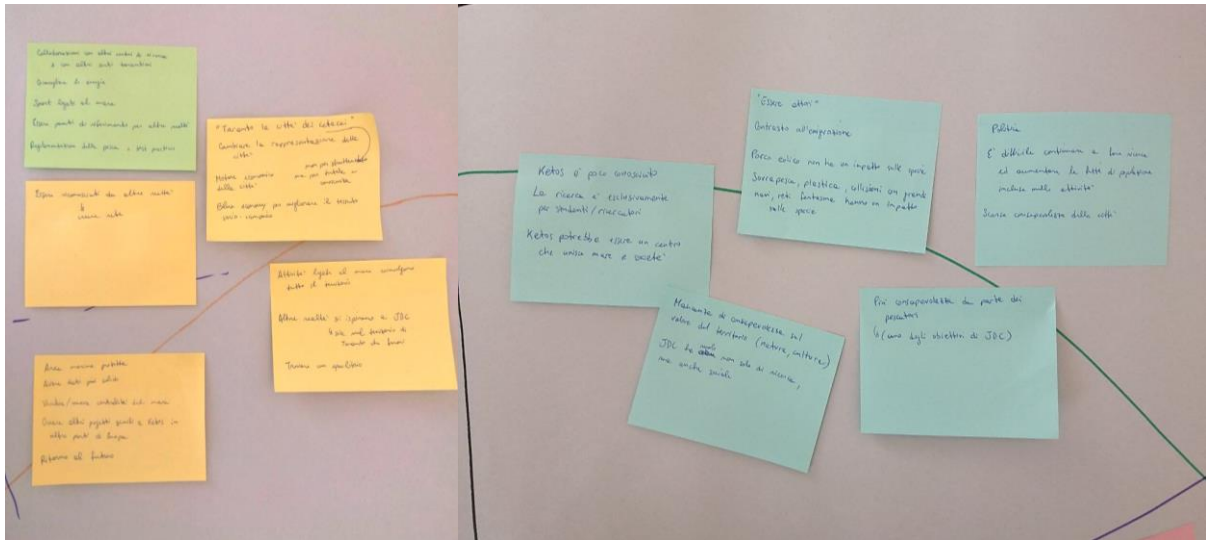 Collaborazioni con altri centri di ricerca
e con altri enti tarantini
Consumo di energia
Sport legati al mare
Essere punti di riferimento per altre realtà
Regolamentazione della pesca,
Essere riconosciuti da altre realtà
↳ creare rete
"Taranto la città dei cetacei"
Cambiare la rappresentazione della
città
Motore economico
della città
non per sfruttamento
ma per turbe in
Blue economy per migliorare il tessuto
socio-economico
Attività legate al mare coinvolgono
tutto il territorio
Altre realtà si ispirano a JDC
↳ sia sul territorio di
Taranto che fuori
Turismo con equilibrio
Area marina protetta
Avere dati più solidi
controllati sui mari
Creare altri progetti simili a Ketos in
altre parti di Europa
Ritorno al futuro
Ketos è poco conosciuto
La ricerca è esclusivamente
per studenti/ricercatori
Ketos potrebbe essere un centro
che unisca mare e società
"Essere attori"
Contrasto all'emigrazione
Parco eolico non ha un impatto sulle specie
Sovrapesca, plastica, collisioni con grandi
navi, reti fantasma hanno un impatto
sulle specie
Politica
È difficile continuare a fare ricerca
ed aumentare le fette di popolazione
incluse nelle attività
Scarsa consapevolezza della città
Mancanza di consapevolezza sul
valore del territorio (natura, cultura)
JDC ha non solo di ricerca,
ma anche sociale
Più consapevolezza da parte dei
pescatori
↳ (uno degli obiettivi di JDC)